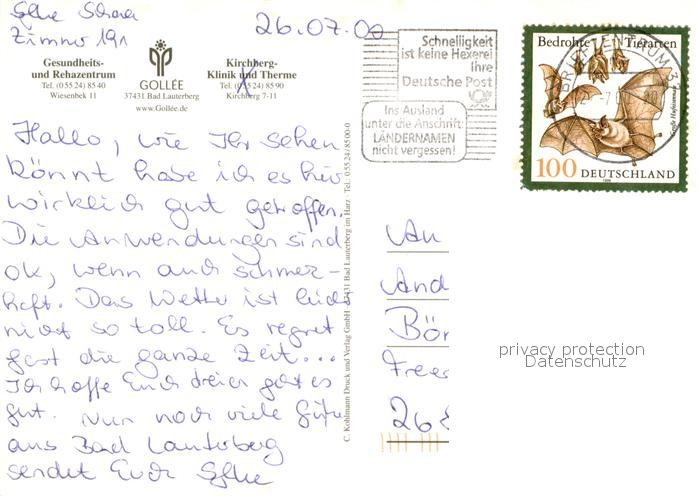 Zimmer 191
26.07.00
Gesundheits-
und Rehazentrum
Tel. (0 55 24) 85 40
Wiesenbek 11
GOLLÉE
37431 Bad Lauterberg
www.Gollée.de
Kirchberg-
Klinik und Therme
Tel. (0 55 24) 85 90
Kirchberg 7-11
Schnelligkeit
ist keine Hexerei
Ihre
Deutsche Post
Ins Ausland
unter die Anschrift:
LÄNDERNAMEN
nicht vergessen!
Bedrohte Tierarten
BRIEFZENTRUM
100 DEUTSCHLAND
Hallo, wie Ihr sehen
könnt habe ich es hier
wirklich gut getroffen.
Die Anwendungen sind
ok, wenn auch schmerz-
haft. Das Wetter ist leider
nicht so toll. Es regnet
fast die ganze Zeit...
Ich hoffe Euch dreien geht es
gut. Nun noch viele Grüße
aus Bad Lauterberg
sendet Euch Elke
C. Kohlmann Druck und Verlag GmbH 37431 Bad Lauterberg im Harz Tel. 0 55 24 / 85 00-0
An
And
Bör
26
privacy protection
Datenschutz